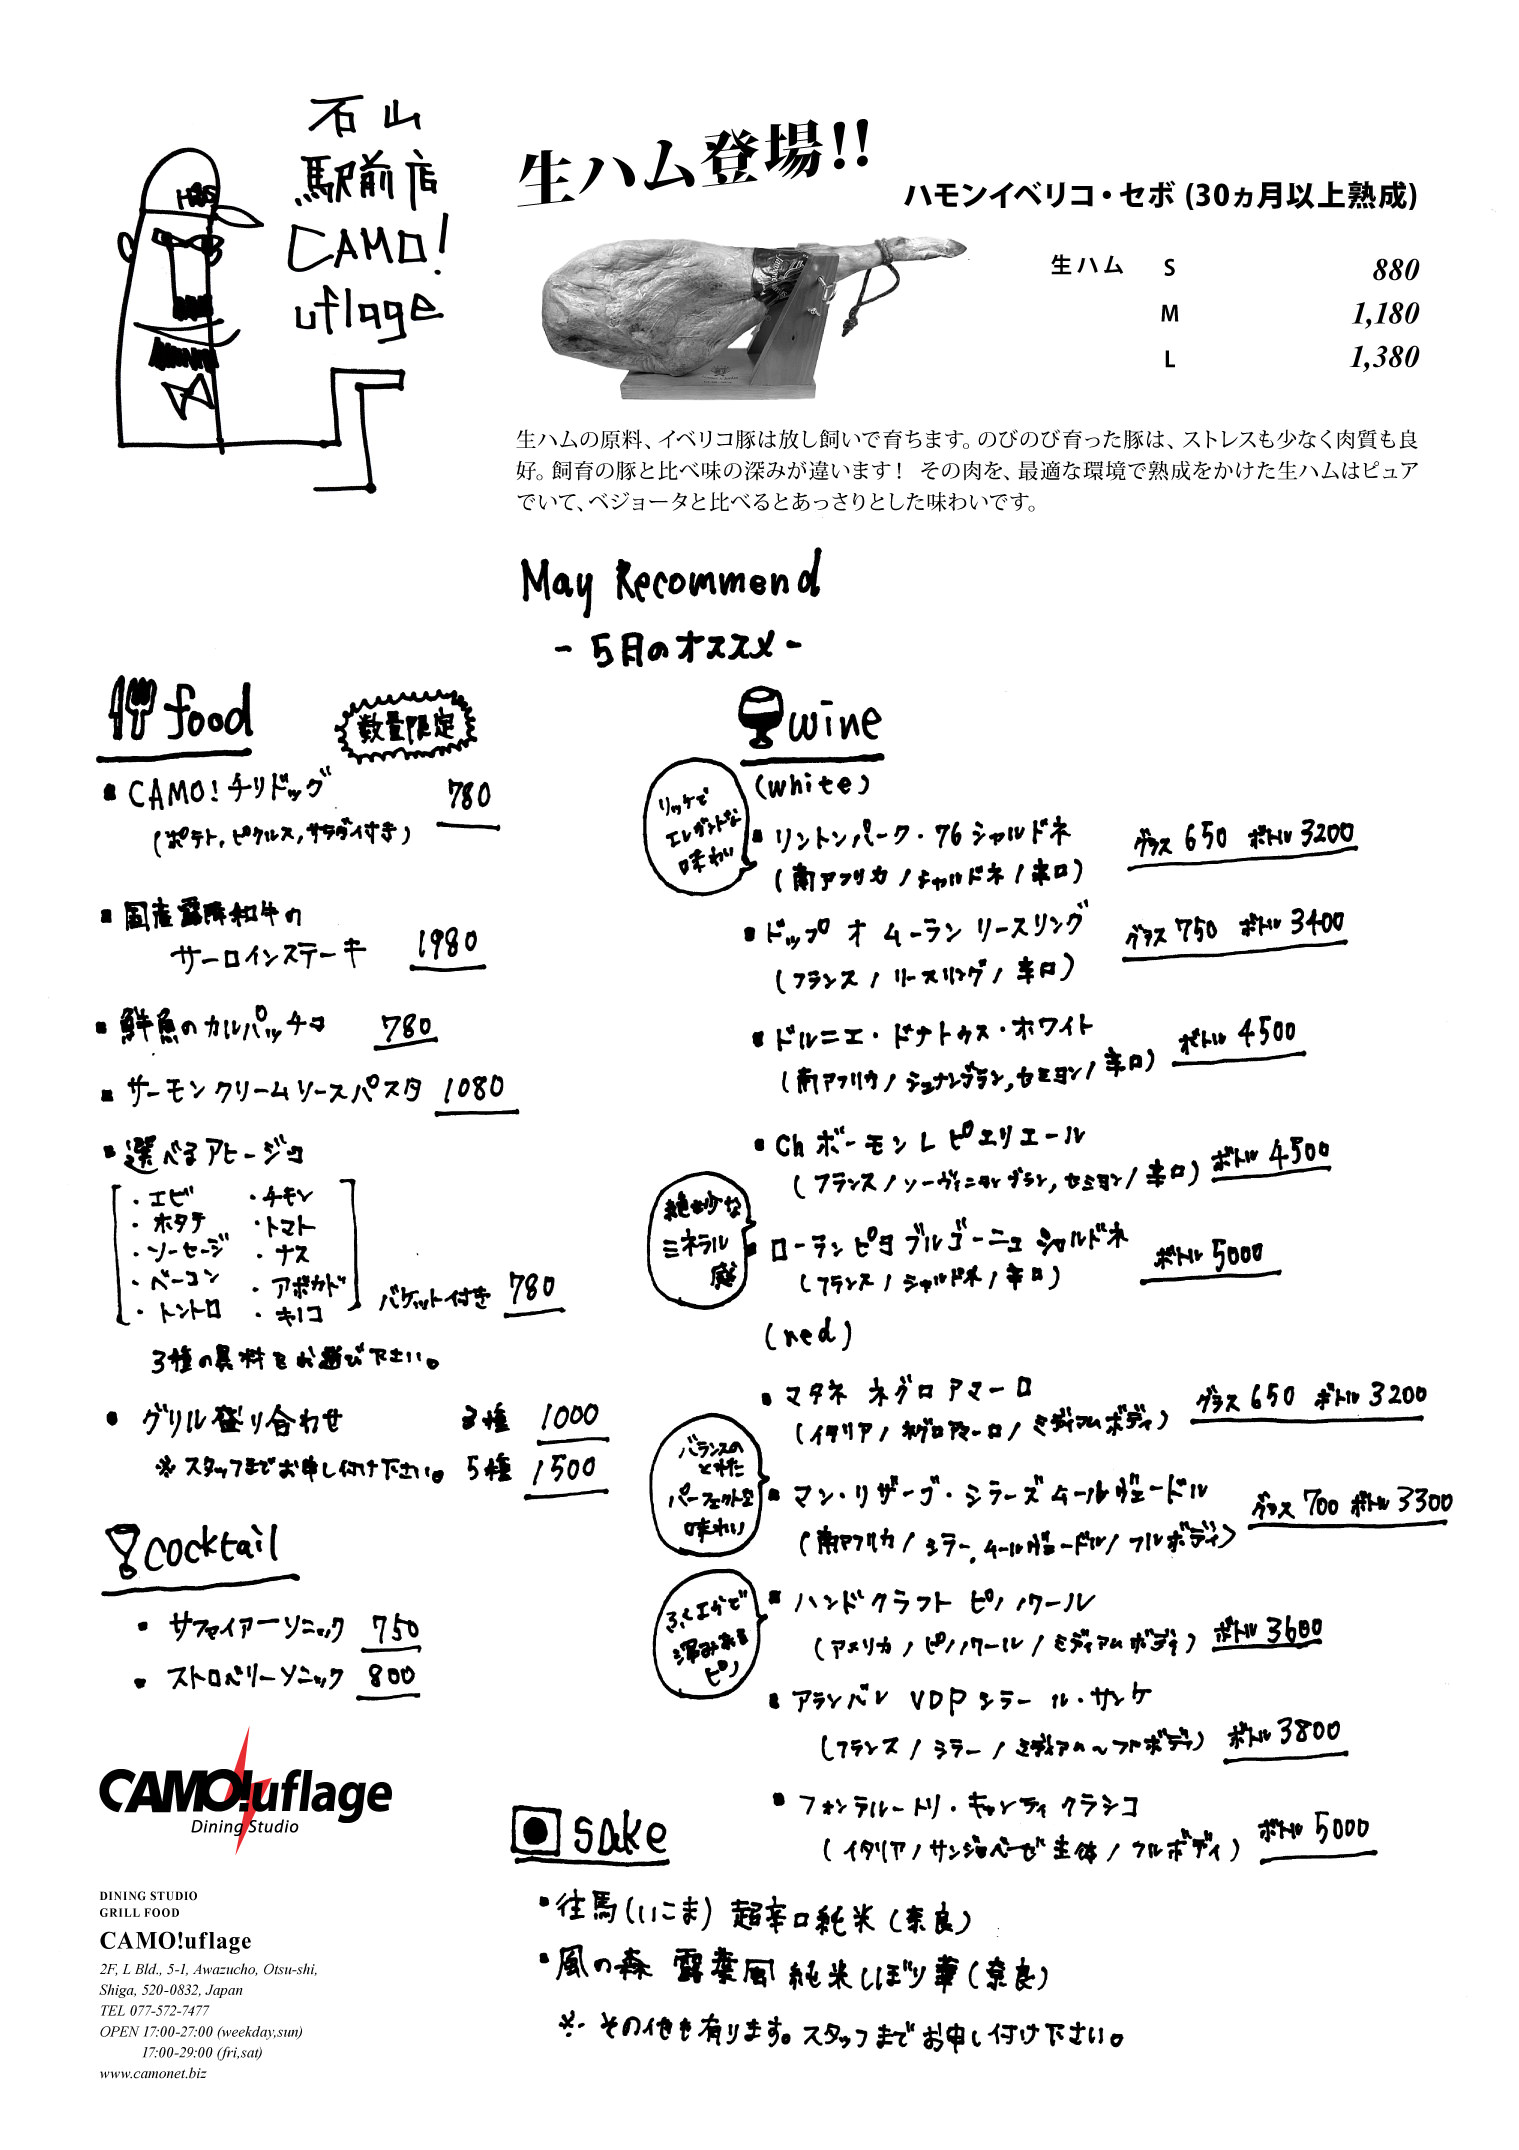 石山
駅前店
CAMO!
uflage
生ハム登場!!
ハモンイベリコ・セボ (30ヵ月以上熟成)
生ハム S 880
M 1,180
L 1,380
生ハムの原料、イベリコ豚は放し飼いで育ちます。のびのび育った豚は、ストレスも少なく肉質も良
好。飼育の豚と比べ味の深みが違います！ その肉を、最適な環境で熟成をかけた生ハムはピュア
でいて、ベジョータと比べるとあっさりとした味わいです。
May Recommend
- 5月のオススメ -
food
数量限定
・CAMO!チリドッグ 780
(ポテト, ピクルス, サラダ付き)
・国産霜降和牛の
サーロインステーキ 1980
・鮮魚のカルパッチョ 780
・サーモンクリームソースパスタ 1080
・選べるアヒージョ
・エビ ・チキン
・ホタテ ・トマト
・ソーセージ ・ナス
・ベーコン ・アボカド
・トントロ ・キノコ
バゲット付き 780
3種の具材をお選び下さい。
・グリル盛り合わせ 3種 1000
※スタッフまでお申し付け下さい。 5種 1500
cocktail
・サファイアーソニック 750
・ストロベリーソニック 800
CAMO!uflage
Dining Studio
DINING STUDIO
GRILL FOOD
CAMO!uflage
2F, L Bld., 5-1, Awazucho, Otsu-shi,
Shiga, 520-0832, Japan
TEL 077-572-7477
OPEN 17:00-27:00 (weekday,sun)
17:00-29:00 (fri,sat)
www.camonet.biz
wine
(white)
リッチで
エレガントな
味わい
・リントンパーク・76 シャルドネ グラス 650 ボトル 3200
(南アフリカ / シャルドネ / 辛口)
・ドップ オ ムーラン リースリング グラス 750 ボトル 3400
(フランス / リースリング / 辛口)
・ドルニエ・ドナトゥス・ホワイト ボトル 4500
(南アフリカ / シュナンブラン, セミヨン / 辛口)
・Ch ボーモン レ ピエリエール ボトル 4500
(フランス / ソーヴィニヨンブラン, セミヨン / 辛口)
絶妙な
ミネラル
感
・ローラン ピヨ ブルゴーニュ シャルドネ ボトル 5000
(フランス / シャルドネ / 辛口)
(red)
・マタネ ネグロアマーロ グラス 650 ボトル 3200
(イタリア / ネグロアマーロ / ミディアムボディ)
バランスの
とれた
パーフェクトな
味わい
・マン・リザーブ・シラーズ ムールヴェードル グラス 700 ボトル 3300
(南アフリカ / シラー, ムールヴェードル / フルボディ)
ふくよかで
深みある
ピノ
・ハンドクラフト ピノノワール ボトル 3600
(アメリカ / ピノノワール / ミディアムボディ)
・アランバレ VDP シラー ル・サンケ ボトル 3800
(フランス / シラー / ミディアム〜フルボディ)
・フォンテルートリ・キャンティ クラシコ ボトル 5000
(イタリア / サンジョベーゼ主体 / フルボディ)
sake
・往馬(いこま) 超辛口純米 (奈良)
・風の森 露葉風 純米しぼり華 (奈良)
※その他も有ります。スタッフまでお申し付け下さい。